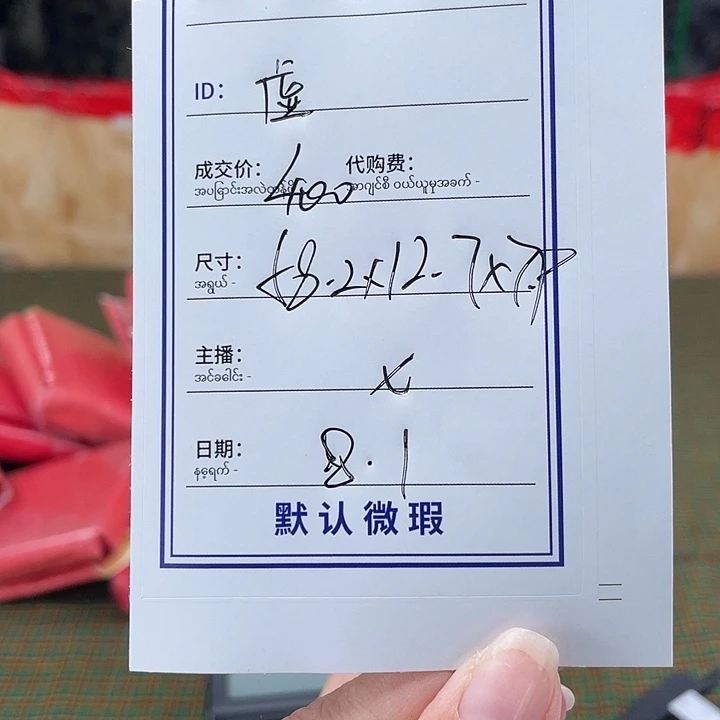 ID: 虚
成交价: 400 代购费:
အပြောင်းအလဲတန်ဖိုး အာဂျင်စီ ဝယ်ယူမှုအခက် -
尺寸: 58.2x12.7x7.7
အရွယ် -
主播: x
အင်ခေါင်း -
日期: 8.1
နေ့ရက် -
默认微瑕